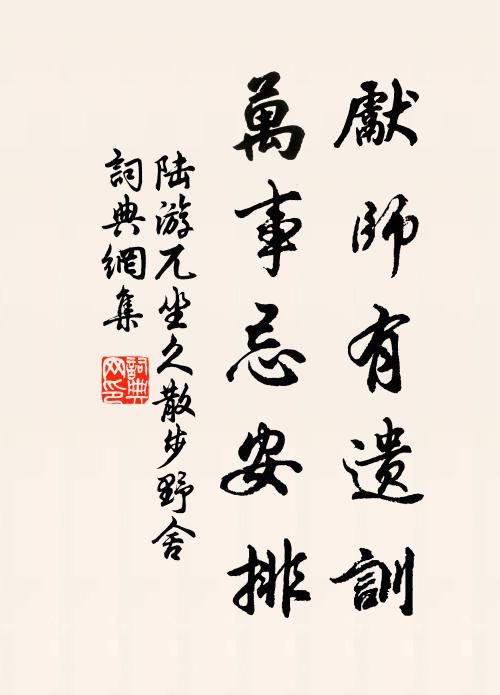 獻師有遺訓
萬事忌安排
陆游兀坐久散步野舍
詞典網集
詞典网印